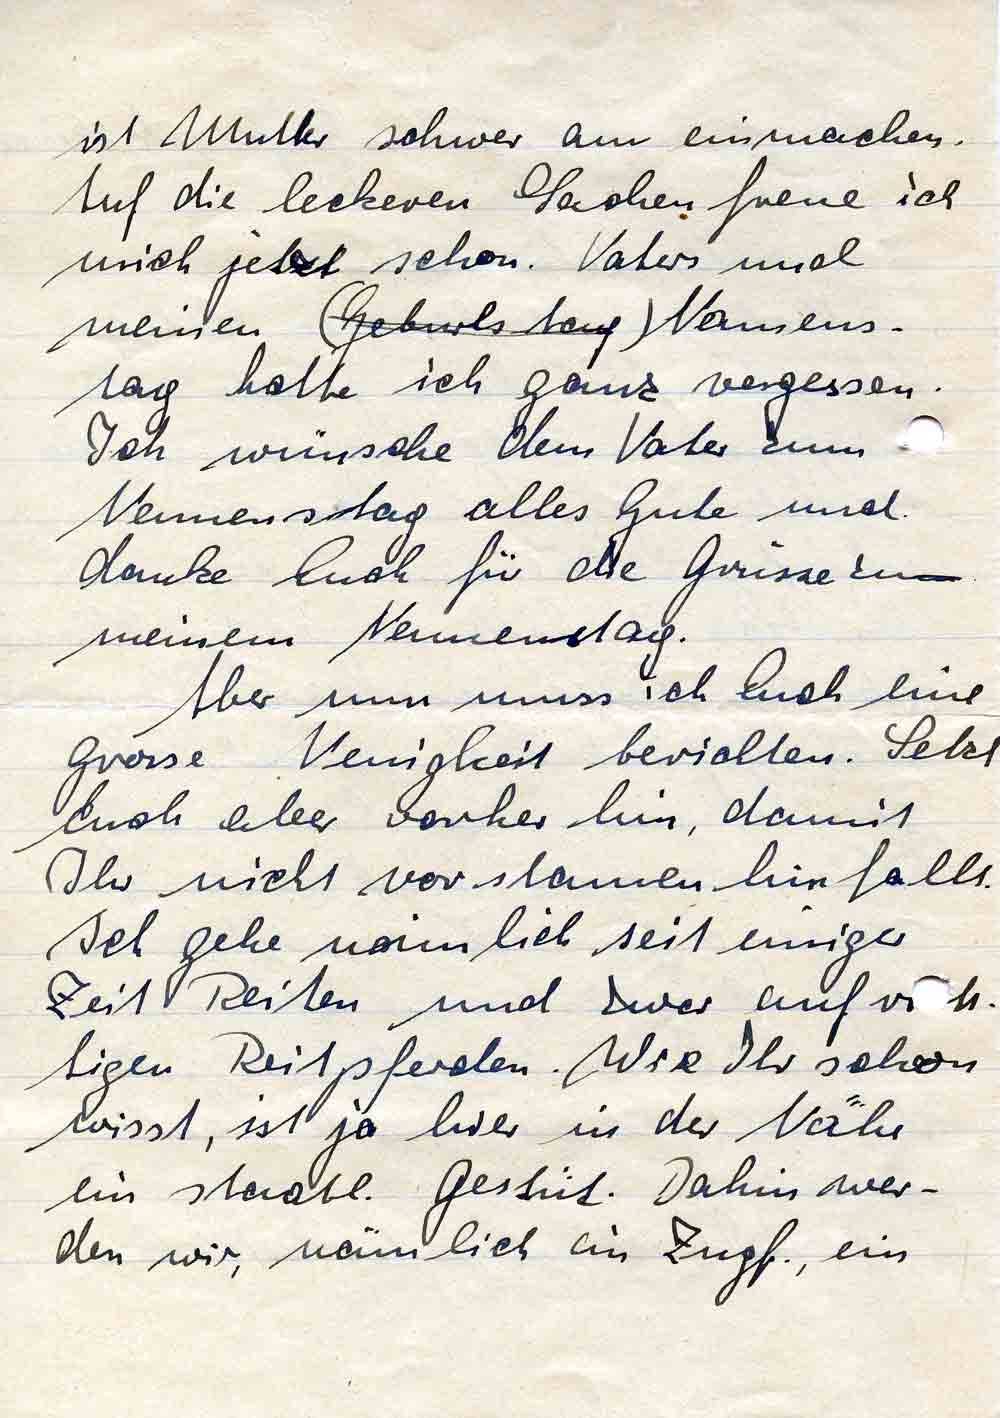 ist Mutter schwer am einmachen.
Auf die leckeren Sachen freue ich
mich jetzt schon. Vaters und
meinen (Geburtstag) Namens-
tag hatte ich ganz vergessen.
Ich wünsche dem Vater zum
Namenstag alles Gute und
danke Euch für die Grüsse zu
meinem Namenstag.
Aber nun muss ich Euch eine
grosse Neuigkeit berichten. Setzt
Euch aber vorher hin, damit
Ihr nicht vor staunen hinfallt.
Ich gehe nämlich seit einiger
Zeit Reiten und zwar auf rich-
tigen Reitpferden. Wie Ihr schon
wisst, ist ja hier in der Nähe
ein staatl. Gestüt. Dahin wer-
den wir, nämlich ein Zugf., ein